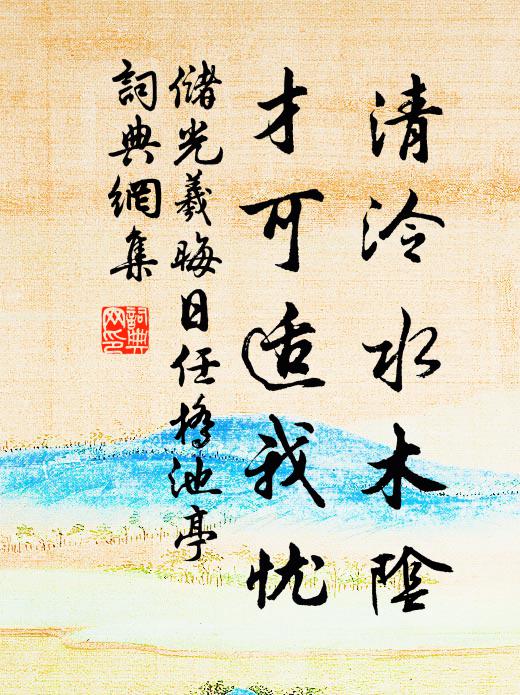 清泠水木陰
才可适我忧
儲光羲晦日任橋池亭
詞典網集
詞典网印